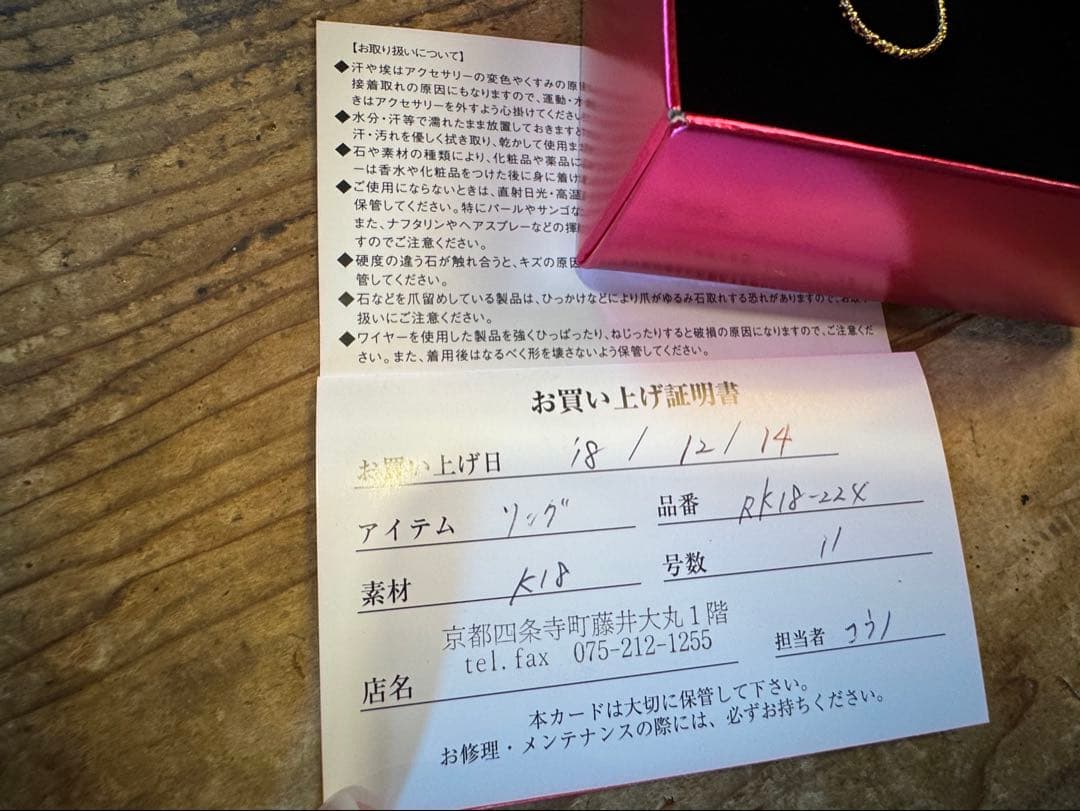 【お取り扱いについて】
◆汗や埃はアクセサリーの変色やくすみの原
接着取れの原因にもなりますので、運動・
きはアクセサリーを外すよう心掛けてください
◆水分・汗等で濡れたまま放置しておきますと
汗・汚れを優しく拭き取り、乾かして使用
◆石や素材の種類により、化粧品や薬品に
ーは香水や化粧品をつけた後に身に着け
◆ご使用にならないときは、直射日光・高温
保管してください。特にパールやサンゴな
また、ナフタリンやヘアスプレーなどの揮
すのでご注意ください。
◆硬度の違う石が触れ合うと、キズの原因
管してください。
◆石などを爪留めしている製品は、ひっかけなどにより爪がゆるみ石取れする恐れがありますので、お取り
扱いにご注意ください。
◆ワイヤーを使用した製品を強くひっぱったり、ねじったりすると破損の原因になりますので、ご注意くだ
さい。また、着用後はなるべく形を壊さないよう保管してください。
お買い上げ証明書
お買い上げ日 18 / 12 / 14
アイテム リング 品番 RK18-224
素材 K18 号数 11
京都四条寺町藤井大丸1階
tel.fax 075-212-1255
店名 担当者 コウノ
本カードは大切に保管して下さい。
お修理・メンテナンスの際には、必ずお持ちください。